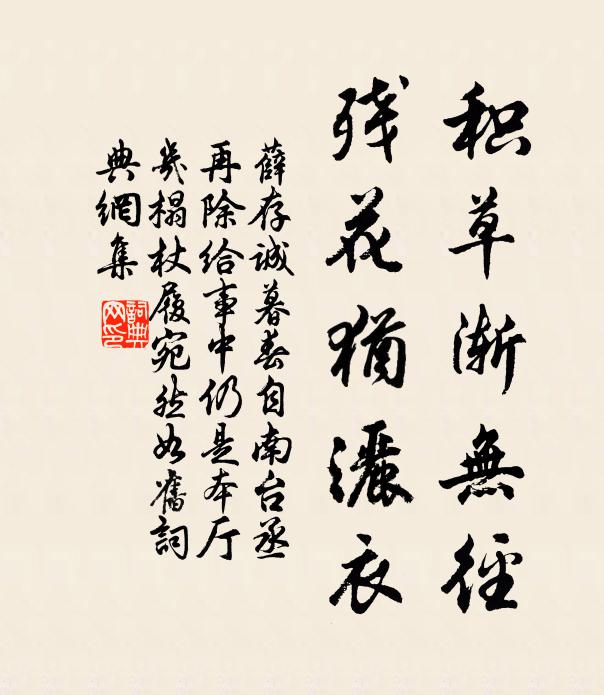 积草渐無径
残花猶灑衣
薛存诚暮春自南台丞
再除给事中仍是本厅
几榻杖履宛然如舊詞
典網集
詞典網印